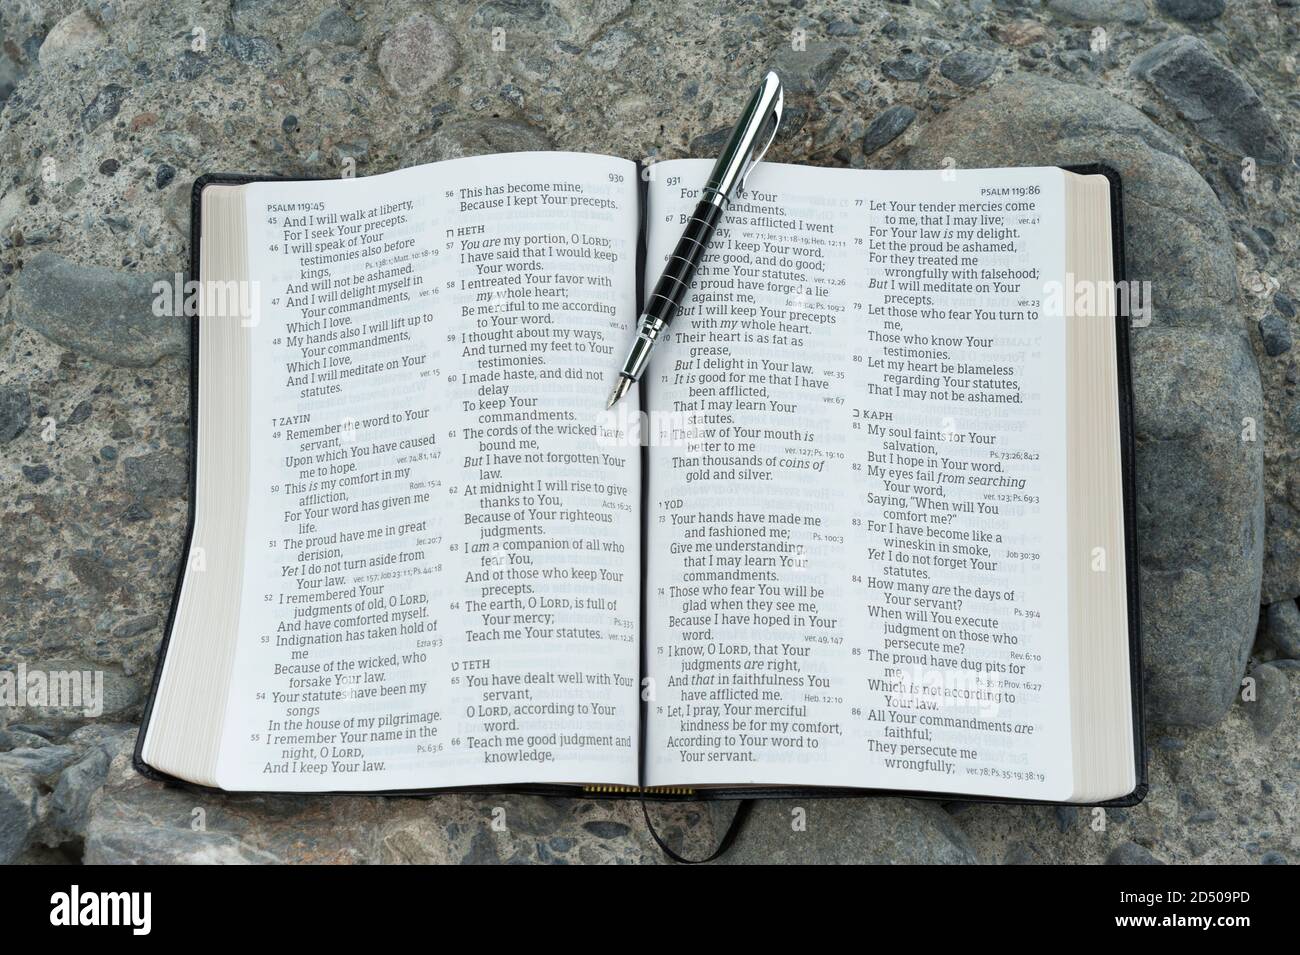 PSALM 119:45
930
45 And I will walk at liberty,
For I seek Your precepts.
46 I will speak of Your
testimonies also before
kings, Ps. 138:1; Matt. 10:18-19
And will not be ashamed.
47 And I will delight myself in
Your commandments, ver. 16
Which I love.
48 My hands also I will lift up to
Your commandments,
Which I love,
And I will meditate on Your
statutes. ver. 15
ז ZAYIN
49 Remember the word to Your
servant,
Upon which You have caused
me to hope. ver. 74,81,147
50 This is my comfort in my
affliction, Rom. 15:4
For Your word has given me
life.
51 The proud have me in great
derision, Jer. 20:7
Yet I do not turn aside from
Your law. ver. 157; Job 23:11; Ps. 44:18
52 I remembered Your
judgments of old, O LORD,
And have comforted myself.
53 Indignation has taken hold of
me Ezra 9:3
Because of the wicked, who
forsake Your law.
54 Your statutes have been my
songs
In the house of my pilgrimage.
55 I remember Your name in the
night, O LORD, Ps. 63:6
And I keep Your law.
56 This has become mine,
Because I kept Your precepts.
ח HETH
57 You are my portion, O LORD;
I have said that I would keep
Your words.
58 I entreated Your favor with
my whole heart;
Be merciful to me according
to Your word. ver. 41
59 I thought about my ways,
And turned my feet to Your
testimonies.
60 I made haste, and did not
delay
To keep Your
commandments.
61 The cords of the wicked have
bound me,
But I have not forgotten Your
law.
62 At midnight I will rise to give
thanks to You, Acts 16:25
Because of Your righteous
judgments.
63 I am a companion of all who
fear You,
And of those who keep Your
precepts.
64 The earth, O LORD, is full of
Your mercy; Ps. 33:5
Teach me Your statutes. ver. 12,26
ט TETH
65 You have dealt well with Your
servant,
O LORD, according to Your
word.
66 Teach me good judgment and
knowledge,
931
PSALM 119:86
For Your
67 was afflicted I went
ver. 71; Jer. 31:18-19; Heb. 12:11
now I keep Your word.
are good, and do good;
me Your statutes. ver. 12,26
proud have forged a lie
against me, Ps. 109:2
But I will keep Your precepts
with my whole heart.
70 Their heart is as fat as
grease,
But I delight in Your law. ver. 35
71 It is good for me that I have
been afflicted, ver. 67
That I may learn Your
statutes.
72 The law of Your mouth is
better to me ver. 127; Ps. 19:10
Than thousands of coins of
gold and silver.
י YOD
73 Your hands have made me
and fashioned me; Ps. 100:3
Give me understanding,
that I may learn Your
commandments.
74 Those who fear You will be
glad when they see me,
Because I have hoped in Your
word. ver. 49, 147
75 I know, O LORD, that Your
judgments are right,
And that in faithfulness You
have afflicted me. Heb. 12:10
76 Let, I pray, Your merciful
kindness be for my comfort,
According to Your word to
Your servant.
77 Let Your tender mercies come
to me, that I may live; ver. 41
For Your law is my delight.
78 Let the proud be ashamed,
For they treated me
wrongfully with falsehood;
But I will meditate on Your
precepts. ver. 23
79 Let those who fear You turn to
me,
Those who know Your
testimonies.
80 Let my heart be blameless
regarding Your statutes,
That I may not be ashamed.
כ KAPH
81 My soul faints for Your
salvation, Ps. 73:26; 84:2
But I hope in Your word.
82 My eyes fail from searching
Your word, ver. 123; Ps. 69:3
Saying, "When will You
comfort me?"
83 For I have become like a
wineskin in smoke, Job 30:30
Yet I do not forget Your
statutes.
84 How many are the days of
Your servant? Ps. 39:4
When will You execute
judgment on those who
persecute me? Rev. 6:10
85 The proud have dug pits for
me, Ps. 35:7; Prov. 16:27
Which is not according to
Your law.
86 All Your commandments are
faithful;
They persecute me
wrongfully; ver. 78; Ps. 35:19; 38:19
alamy
Image ID: 2D509PD
www.alamy.com